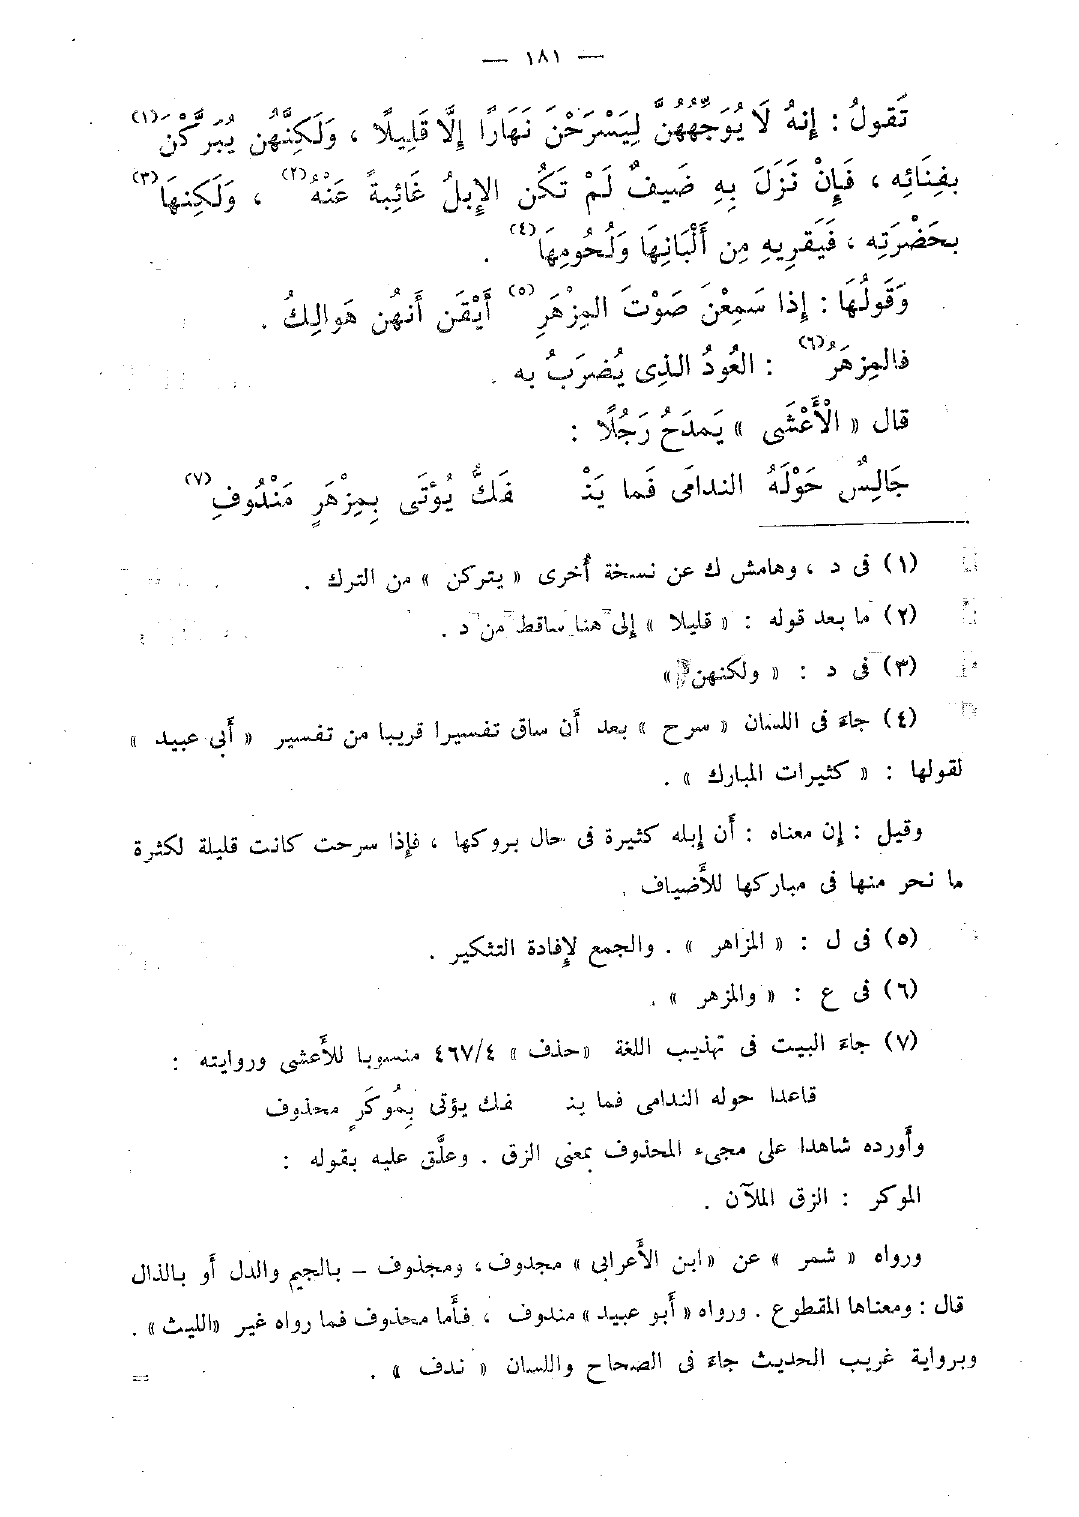 — ١٨١ —
تَقولُ : إنهُ لَا يُوَجِّهُهُنَّ لِيَسْرَحْنَ نَهَارًا إلَّا قَلِيلًا ، وَلَكِنَّهُن يُبَرَّكْنَ (١)
بفِنَائِه ، فَإنْ نَزَلَ بِهِ ضَيفٌ لَمْ تَكُن الإبلُ غَائِبةً عَنْهُ (٢) ، وَلَكِنهَا (٣)
بحَضْرَتِه ، فَيَقرِيهِ مِن أَلْبَانِهَا وَلُحُومِهَا (٤) .
وَقَولُهَا : إذا سَمِعْنَ صَوْتَ المِزْهَرِ (٥) أَيْقَن أَنهُن هَوالِكُ .
فالمِزهَرُ (٦) : العُودُ الذِى يُضرَبُ به .
قال « الْأَعْشَى » يَمدَحُ رَجُلًا :
جَالِسٌ حَوْلَهُ الندامَى فَما يَنْ فَكُّ يُؤْتَى بِمِزْهَرٍ مَنْدُوفِ (٧)
(١) فى د ، وهامش ك عن نسخة أُخرى « يتركن » من الترك .
(٢) ما بعد قوله : « قليلا » إلى هنا ساقط من د .
(٣) فى د : « ولكنهن »
(٤) جاءَ فى اللسان « سرح » بعد أن ساق تفسيرا قريبا من تفسير « أبى عبيد »
لقولها : « كثيرات المبارك » .
وقيل : إن معناه : أن إبله كثيرة فى حال بروكها ، فإذا سرحت كانت قليلة لكثرة
ما نحر منها فى مباركها للأضياف .
(٥) فى ل : « المزاهر » . والجمع لإفادة التكثير .
(٦) فى ع : « والمزهر » .
(٧) جاءَ البيت فى تهذيب اللغة «حذف» ٤/‏٤٦٧ منسوبا للأعشى وروايته :
قاعدا حوله الندامى فما ينـ فك يؤتى بِمُوكَرٍ محذوف
وأورده شاهدا على مجىء المحذوف بمعنى الزق . وعلَّق عليه بقوله :
الموكر : الزق الملآن .
ورواه « شمر » عن «ابن الأعرابى» مجدوف ، ومجذوف – بالجيم والدل أو بالذال
قال : ومعناها المقطوع . ورواه «أبو عبيد» مندوف ، فأما محذوف فما رواه غير «الليث» .
وبرواية غريب الحديث جاءَ فى الصحاح واللسان « ندف » .
=